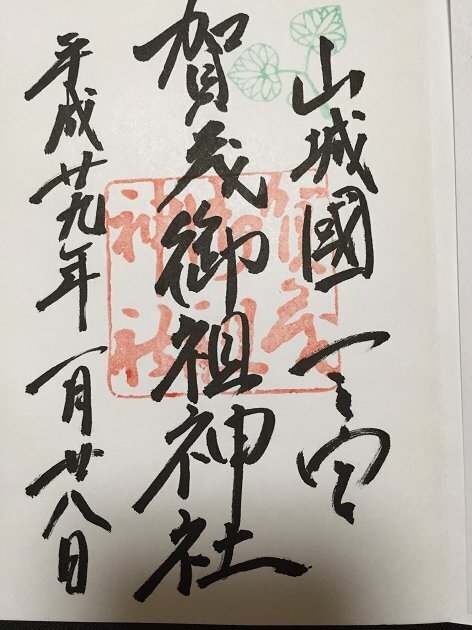 山城國一之宮
賀茂御祖神社
平成廿九年一月廿八日